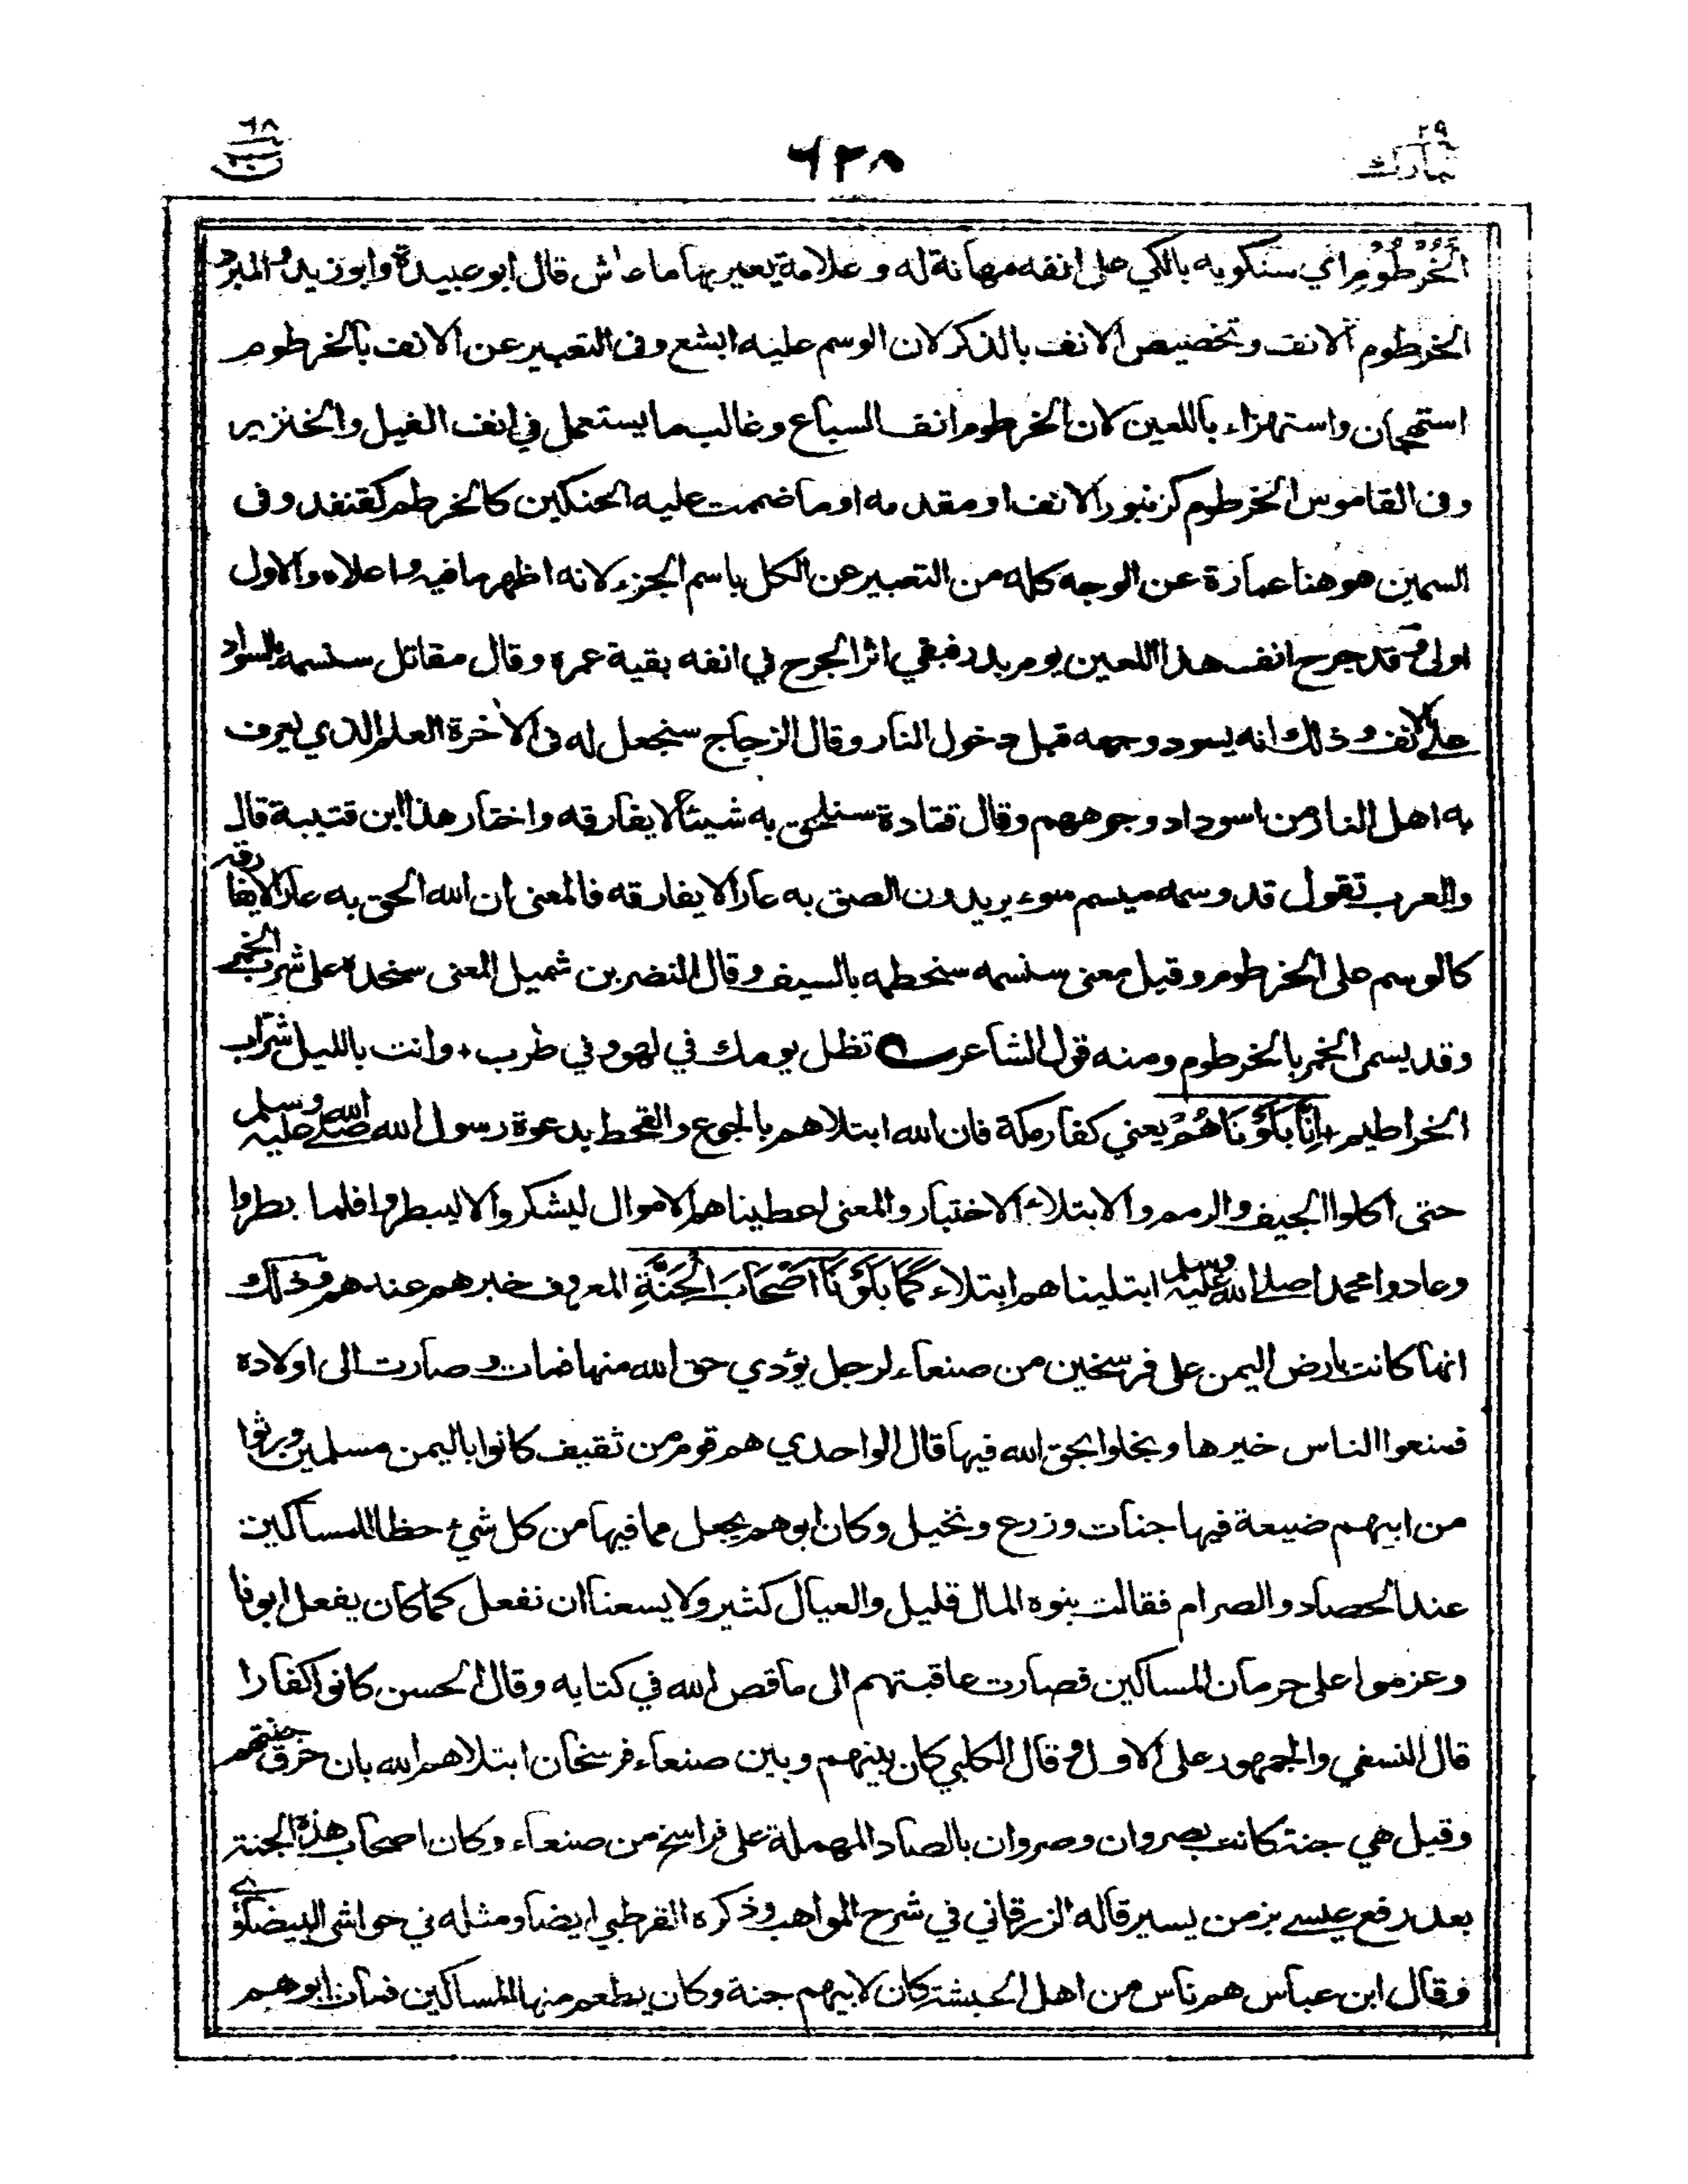 ٢٩ تبارك
٦٢٨
٦٨ ن
الْخُرْطُوْمِ اي سنكويه بالكي على انفه مهانة له وعلامة يعير بها ما عاش قال ابو عبيدة وابو زيد والمبرد
الخرطوم الانف وتخصيص الانف بالذكر لان الوسم عليه ابشع وفى التعبير عن الانف بالخرطوم
استهجان واستهزاء باللعين لان الخرطوم انف السباع وغالب ما يستعمل في انف الفيل والخنزير
وفى القاموس الخرطوم كزنبور الانف او مقدمه او ما ضممت عليه الحنكين كالخرطم كقنفد وفى
السمين هو هنا عبارة عن الوجه كله من التعبير عن الكل باسم الجزء لانه اظهر ما فيه واعلاه والاول
اولى وقد جرح انف هذا اللعين يوم بدر فبقي اثر الجرح في انفه بقية عمره وقال مقاتل سنسمه بالسواد
على الانف وذلك انه يسود وجهه قبل دخول النار وقال الزجاج سنجعل له فى الاخرة العلم الذي يعرف
به اهل النار من اسوداد وجوههم وقال قتادة سنلحق به شيئا لا يفارقه واختار هذا ابن قتيبة قال
والعرب تقول قد وسمه ميسم سوء يريدون الصق به عارا لا يفارقه فالمعنى ان الله الحق به عارا لا يفارقه
كالوسم على الخرطوم وقيل معنى سنسمه سنخطمه بالسيف وقال النضر بن شميل المعنى سنحده على شرب الخمر
وقد يسمى الخمر بالخرطوم ومنه قول الشاعر تظل يومك في لهو وفي طرب + وانت بالليل شراب
الخراطيم + اِنَّا بَلَوْنَاهُمْ يعني كفار مكة فان الله ابتلاهم بالجوع والقحط بدعوة رسول الله صلى الله عليه وسلم
حتى اكلوا الجيف والرمم والابتلاء الاختبار والمعنى اعطيناهم الاموال ليشكروا لا ليبطروا فلما بطروا
وعادوا محمدا صلى الله عليه وسلم ابتليناهم ابتلاء كَمَا بَلَوْنَا اَصْحَابَ الْجَنَّةِ المعروف خبرهم عندهم وذلك
انها كانت بارض اليمن على فرسخين من صنعاء لرجل يؤدي حق الله منها فمات وصارت الى اولاده
فمنعوا الناس خيرها وبخلوا بحق الله فيها قال الواحدي هم قوم من ثقيف كانوا باليمن مسلمين ورثوا
من ابيهم ضيعة فيها جنات وزرع ونخيل وكان ابوهم يجعل مما فيها من كل شيء حظا للمساكين
عند الحصاد والصرام فقالت بنوه المال قليل والعيال كثير ولا يسعنا ان نفعل كما كان يفعل ابونا
وعزموا على حرمان المساكين فصارت عاقبتهم الى ما قص الله في كتابه وقال الحسن كانوا كفارا
قال النسفي والجمهور على الاول وقال الكلبي كان بينهم وبين صنعاء فرسخان ابتلاهم الله بان حرق جنتهم
وقيل هي جنة كانت بصروان وصروان بالصاد المهملة على فراسخ من صنعاء وكان اصحاب هذه الجنة
بعد رفع عيسى بزمن يسير قاله الزرقاني في شرح المواهب وذكره القرطبي ايضا ومثله في حواشى البيضاوي
وقال ابن عباس هم ناس من اهل الحبشة كان لابيهم جنة وكان يطعم منها المساكين فمات ابوهم